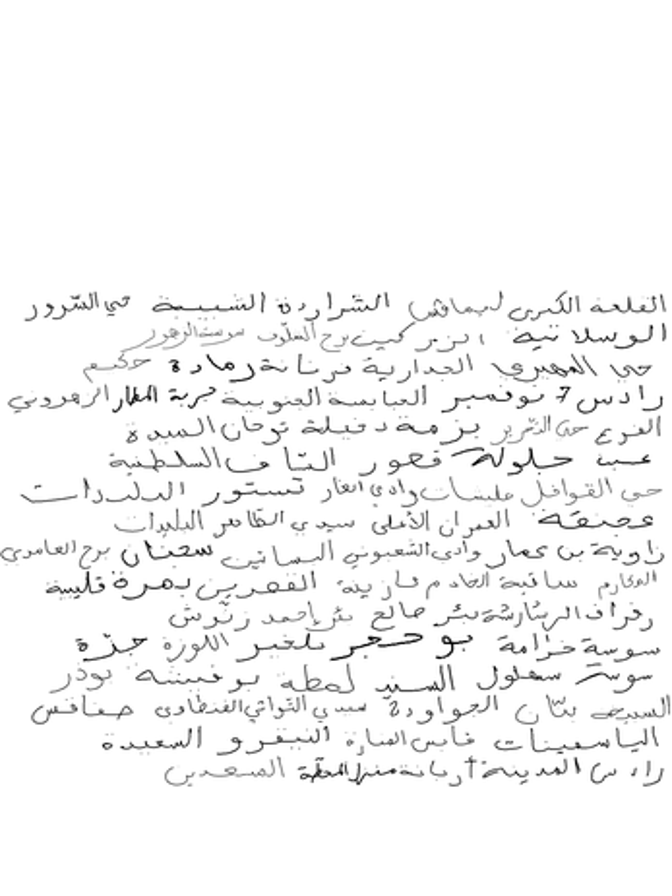 القلعة الكبرى الشرايدة الشبيبة حي السّرور
الوسلاتية برج
حي المهيري الجدارية فرنانة رمادة حكيم
رادس 7 نوفمبر العبابسة الجنوبية خربة المطار الزهروني
الفرع حي التحرير بزمة دقيلة توجان السيدة
جلولة قصور الساف السلطنية
حي القوافل مليشات وادي الغار تستور
عجنقة العمران الأعلى سيدي الظاهر البليدات
زاوية بن عمار وادي الشعبوني البساتين سجنان برج العامري
المكارم ساقية الخادم قلبية
رفراف بئر صالح بئر أحمد زنّوش
سوسة خزامة بو حجر اللوزة جزة
سوسة سهلول السند لمطة بوفيشة بوذر
السبيخة بنّان الجواودة سيدي التواتي القنطاوي صفاقس
الياسمينات قابس المنارة النيفرو السعيدة
رادس المدينة أريانة المحطة السعدين